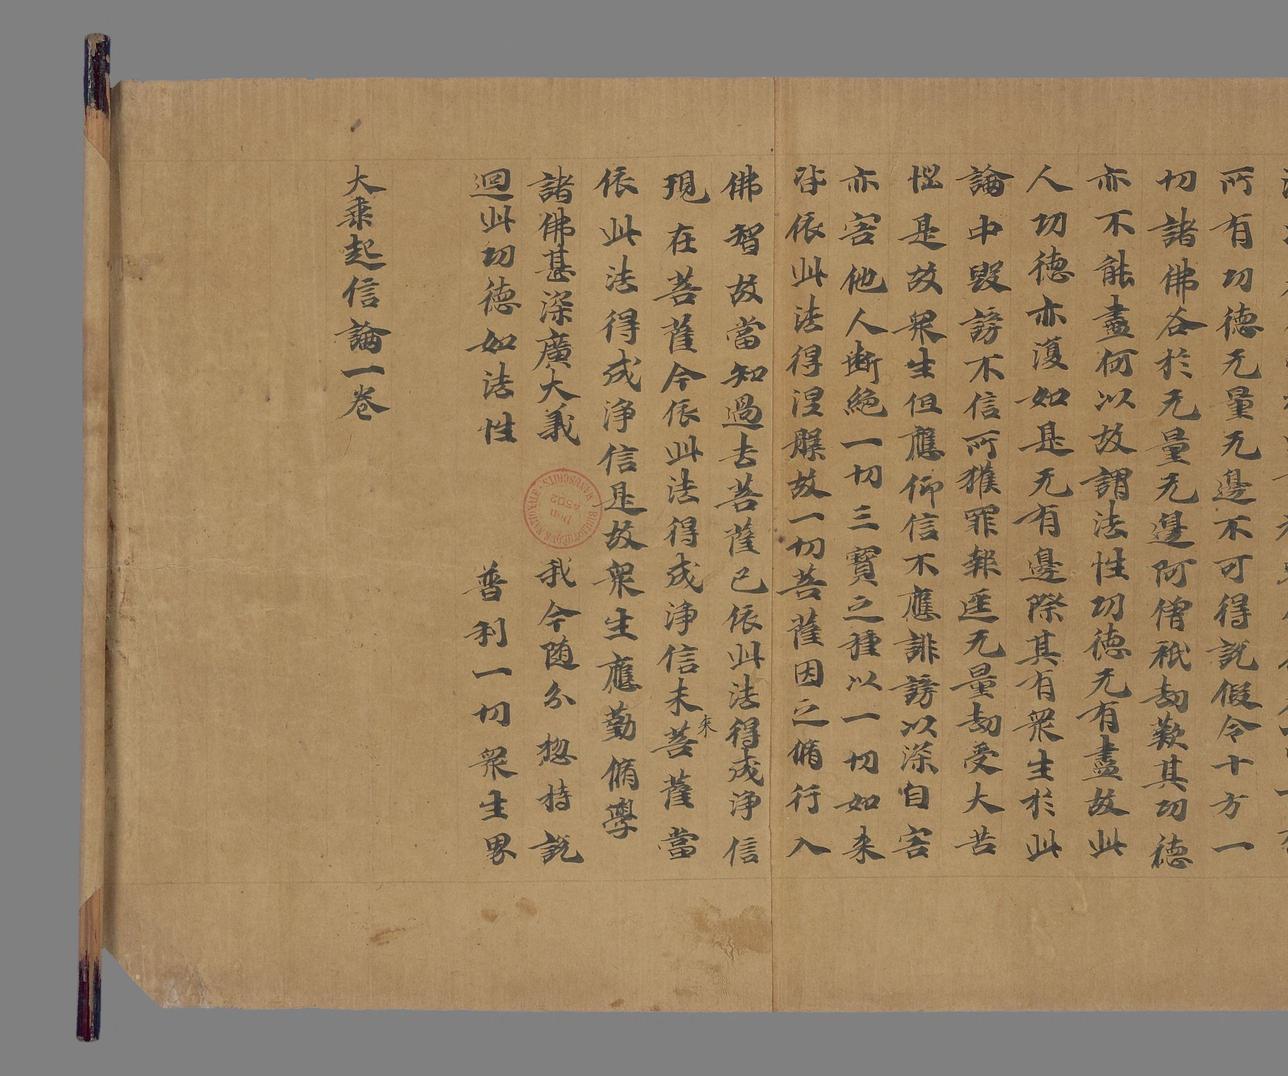 所有功德无量无邊不可得説假令十方一
切諸佛各於无量无邊阿僧祇劫歎其功德
亦不能盡何以故謂法性功德无有盡故此
人功德亦復如是无有邊際其有衆生於此
論中毀謗不信所獲罪報逕无量劫受大苦
惱是故衆生但應仰信不應誹謗以深自害
亦害他人断絶一切三寶之種以一切如来
皆依此法得涅槃故一切菩薩因之脩行入
佛智故當知過去菩薩已依此法得成淨信
現在菩薩今依此法得成淨信未来菩薩當
依此法得成淨信是故衆生應勤脩學
諸佛甚深廣大義 我今随分惣持説
迴此功德如法性 普利一切衆生界
大乘起信論一卷
BIBLIOTHÈQUE NATIONALE
MANUSCRITS
Don
4502